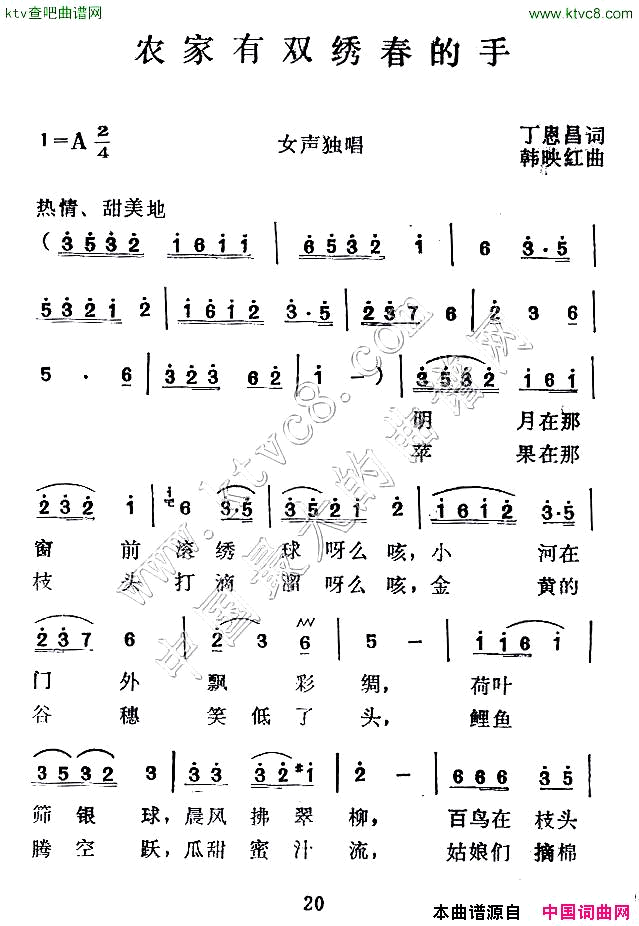 ktv查吧曲谱网
www.ktvc8.com
农家有双绣春的手
1=A 2/4
女声独唱
丁恩昌词
韩映红曲
热情、甜美地
(3532 1611 | 6532 1 | 6 3·5 |
5321 2 | 1612 3·5 | 237 6 | 2 3 |
5 · 6 | 323 62 | 1 -) | 3532 161 |
明 月在那
苹 果在那
232 1 | 6 3·5 | 3521 2 | 1612 3·5 |
窗 前 滚 绣 球 呀么 咳, 小 河在
枝 头 打 滴 溜 呀么 咳, 金 黄的
237 6 | 2 3 6 | 5 - | 116 5 |
门 外 飘 彩 绸, 荷叶
谷 穗 笑 低 了 头, 鲤鱼
3532 3 | 332 3 2#1 | 2 - | 666 35 |
筛 银 球, 晨风 拂 翠 柳, 百鸟在 枝头
腾 空 跃, 瓜甜 蜜 汁 流, 姑娘们 摘棉
20
本曲谱源自 中国词曲网
www.ktvc8.com